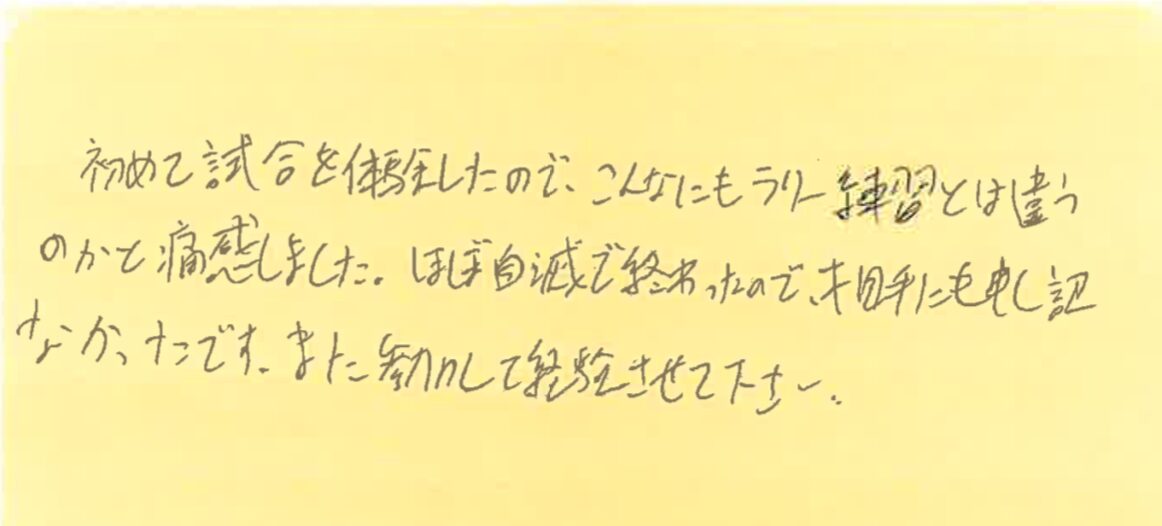 初めて試合を体験したので、こんなにもラリー練習とは違う
のかと痛感しました。ほぼ自滅で終わったので、相手にも申し訳
なかったです。また参加して経験させて下さい。